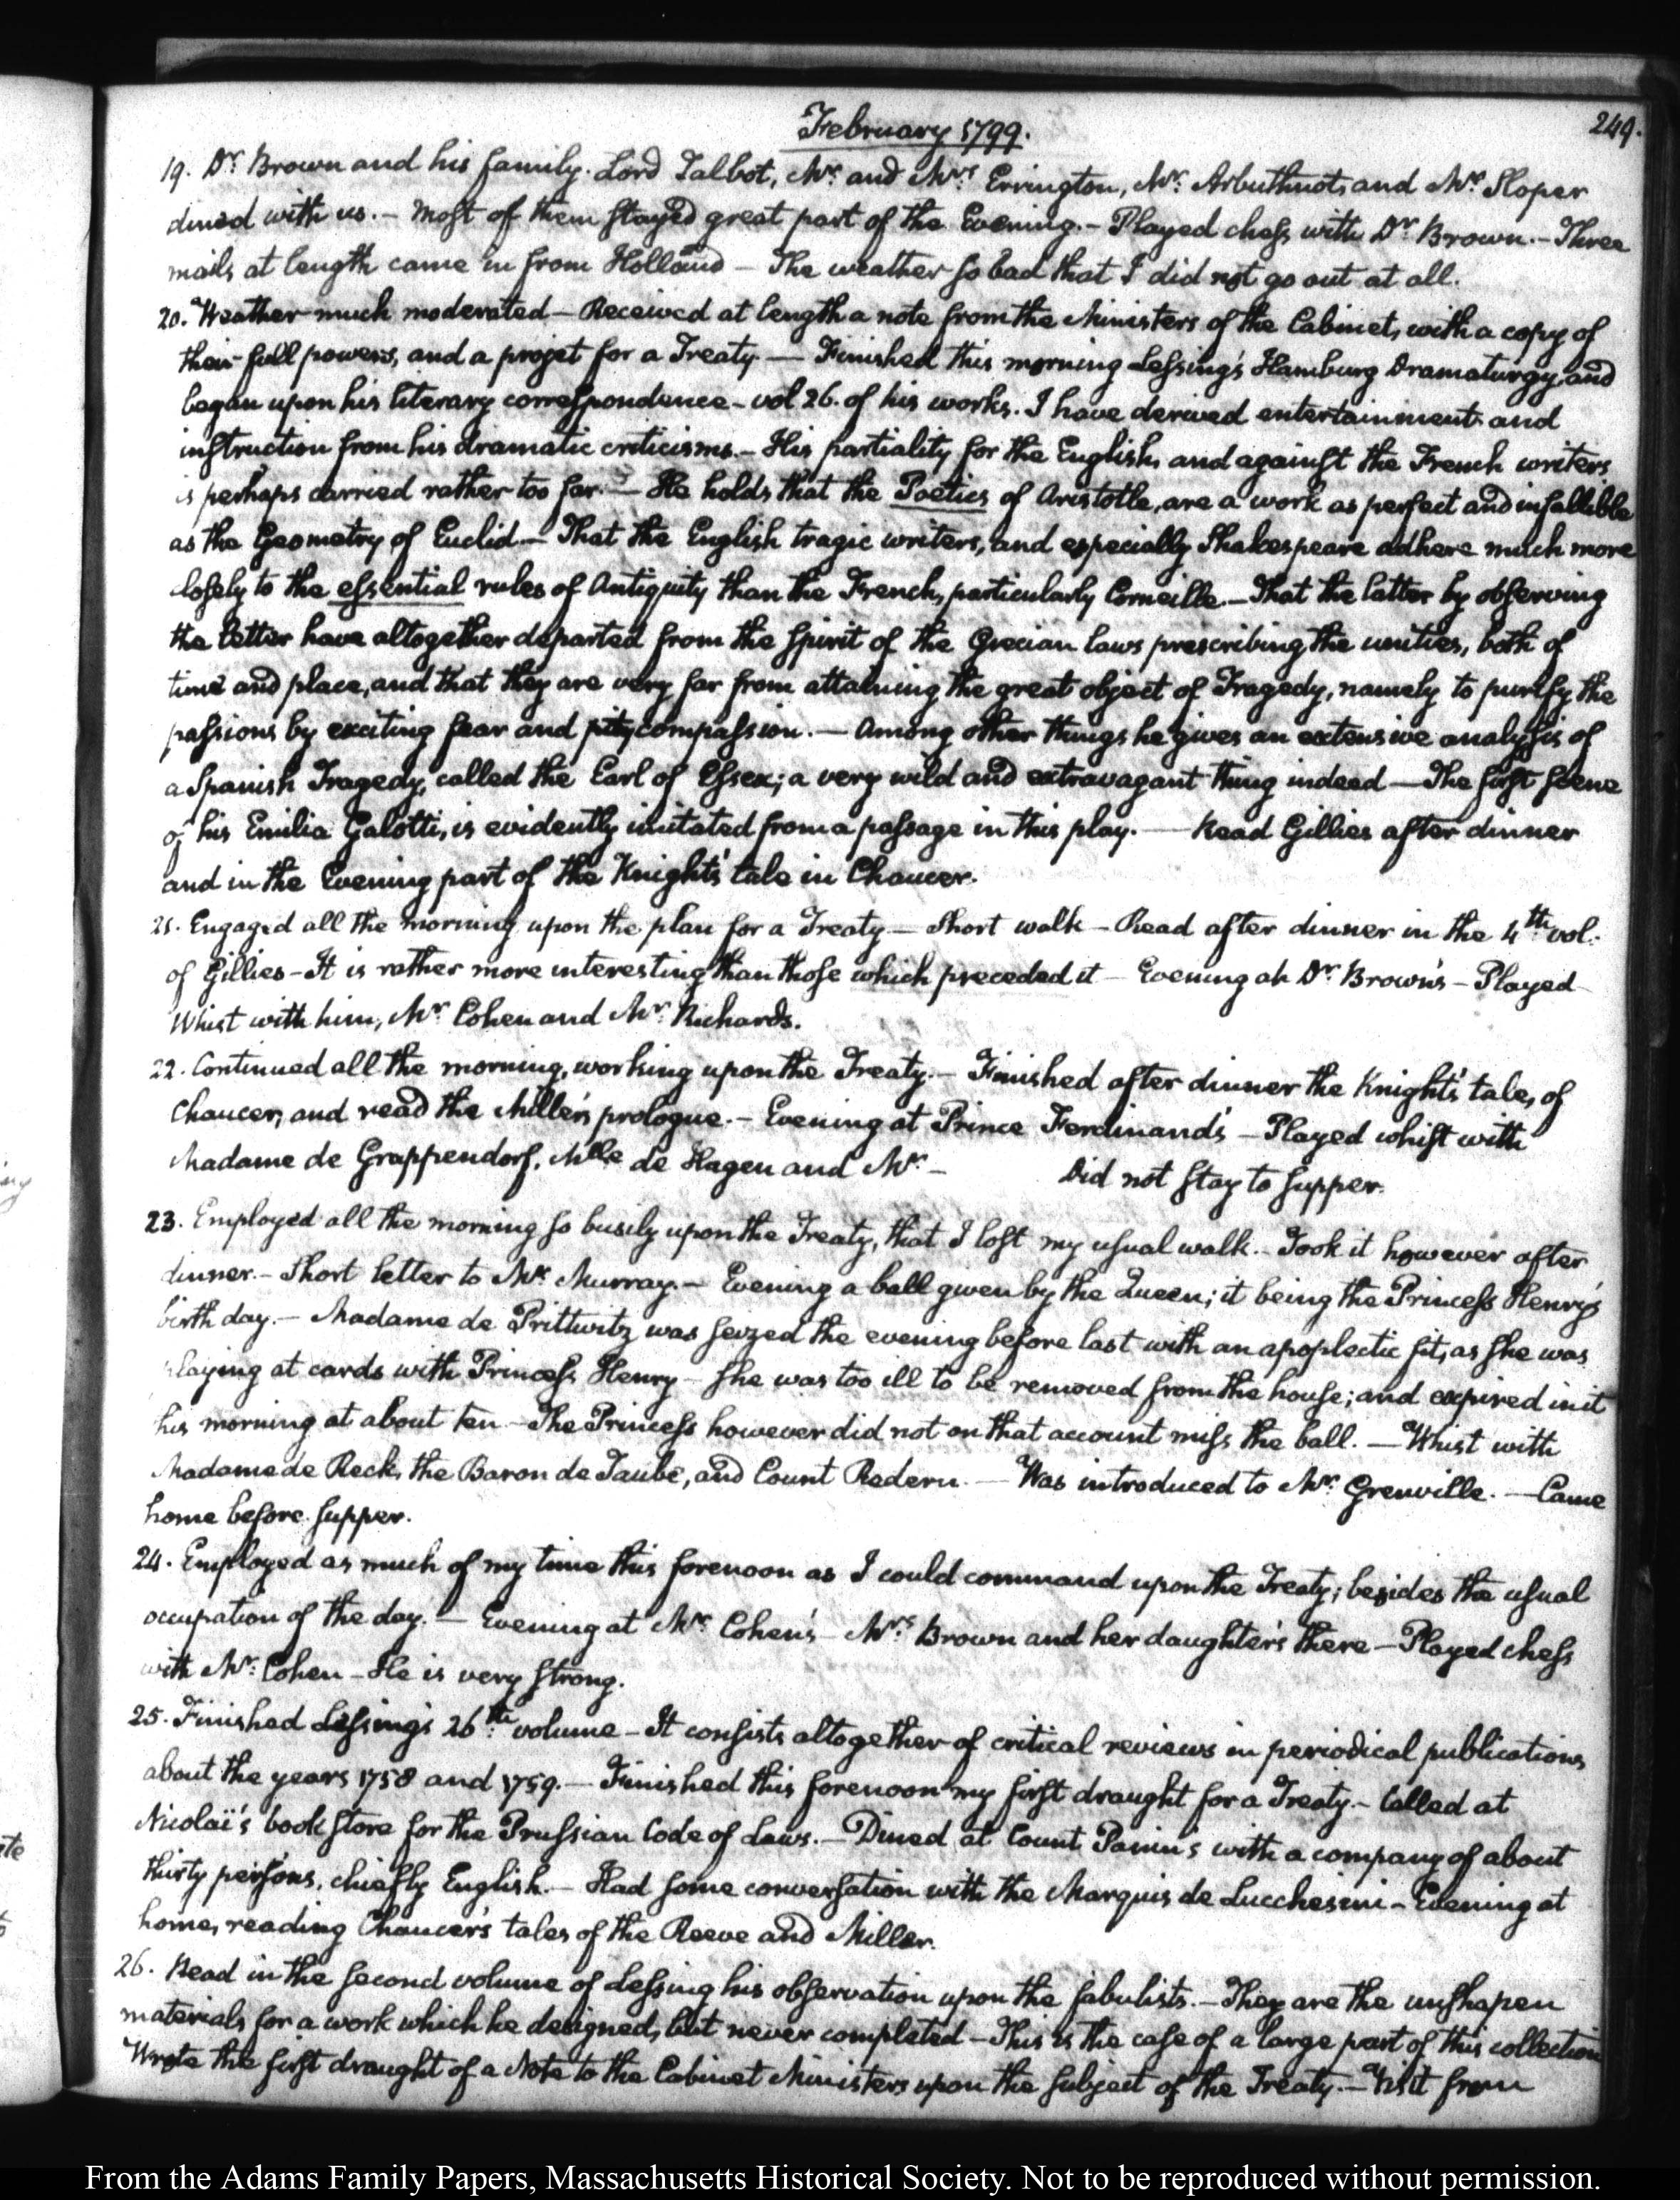 February 1799.
249.
19. Dr. Brown and his family. Lord Talbot, Mr. and Mrs. Errington, Mr. Arbuthnot, and Mr. Sloper
dined with us. — Most of them stayed great part of the Evening. — Played chess with Dr. Brown. — Three
mails at length came in from Holland — The weather so bad that I did not go out at all.
20. Weather much moderated — Received at length a note from the Ministers of the Cabinet, with a copy of
their full powers, and a projet for a Treaty — Finished this morning Lessing's Hamburg Dramaturgy, and
began upon his literary correspondence — vol 26. of his works. I have derived entertainment and
instruction from his dramatic criticisms. — His partiality for the English, and against the French writers
is perhaps carried rather too far. — He holds that the Poetics of Aristotle, are a work as perfect and infallible
as the Geometry of Euclid — That the English tragic writers, and especially Shakespeare adhere much more
closely to the essential rules of Antiquity than the French, particularly Corneille. — That the latter by observing
the letter have altogether departed from the spirit of the Grecian laws prescribing the unities, both of
time and place, and that they are very far from attaining the great object of Tragedy, namely to purify the
passions by exciting fear and pity compassion. — Among other things he gives an extensive analysis of
a Spanish Tragedy, called the Earl of Essex; a very wild and extravagant thing indeed — The first scene
of his Emilia Galotti, is evidently imitated from a passage in this play. — Read Gillies after dinner
and in the Evening part of the Knight's tale in Chaucer.
21. Engaged all the morning upon the plan for a Treaty — Short walk — Read after dinner in the 4th. vol.
of Gillies — It is rather more interesting than those which preceded it — Evening at Dr. Brown's — Played
Whist with him, Mr. Cohen and Mr. Richards.
22. Continued all the morning, working upon the Treaty. — Finished after dinner the Knight's tale, of
Chaucer, and read the Miller's prologue. — Evening at Prince Ferdinand's — Played whist with
Madame de Grappendorf, Mlle de Hagen and Mr. — Did not stay to supper.
23. Employed all the morning so busily upon the Treaty, that I lost my usual walk. — Took it however after
dinner. — Short letter to Mr. Murray. — Evening a ball given by the Queen; it being the Princess Henry's
birth day. — Madame de Prittwitz was seized the evening before last with an apoplectic fit, as she was
playing at cards with Princess Henry — she was too ill to be removed from the house; and expired in it
this morning at about ten — The Princess however did not on that account miss the ball. — Whist with
Madame de Reck, the Baron de Taube, and Count Redern. — Was introduced to Mr. Grenville. — Came
home before supper.
24. Employed as much of my time this forenoon as I could command upon the Treaty; besides the usual
occupation of the day. — Evening at Mr. Cohen's — Mrs. Brown and her daughters there — Played chess
with Mr. Cohen — He is very strong.
25. Finished Lessing's 26th. volume — It consists altogether of critical reviews in periodical publications
about the years 1758 and 1759. — Finished this forenoon my first draught for a Treaty. — Called at
Nicolaï's book store for the Prussian Code of Laws. — Dined at Count Panin's with a company of about
thirty persons, chiefly English. — Had some conversation with the Marquis de Lucchesini — Evening at
home, reading Chaucer's tales of the Reeve and Miller.
26. Read in the second volume of Lessing his observation upon the fabulists. — They are the unshapen
materials for a work which he designed, but never completed — This is the case of a large part of this collection
Wrote the first draught of a Note to the Cabinet Ministers upon the subject of the Treaty. — Visit from
From the Adams Family Papers, Massachusetts Historical Society. Not to be reproduced without permission.